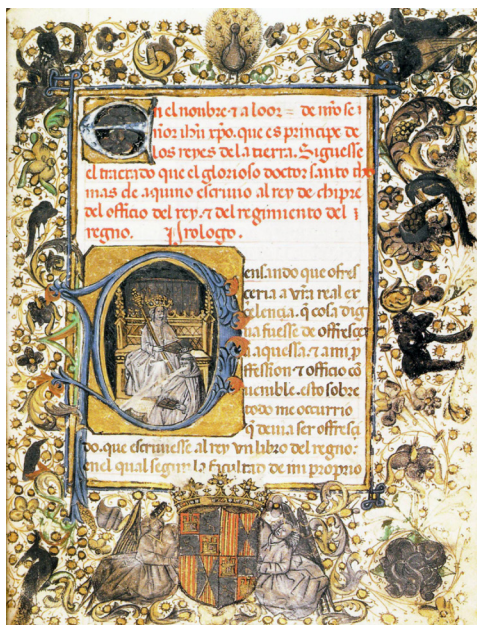 En el nonbre ⁊ a loor = de nr̃o sei
ñor ihũ xp̃o. que es principe de
los reyes de la tierra. Siguesse
el tractado que el glorioso doctor santo tho
mas de aquino escriuio al rey de chipre
del officio del rey. ⁊ del regimiento del
regno. Prologo.
Pensando que ofres
ceria a vr̃a real ex
celencia. q̃ cosa dig
na fuesse de offrescer
a aquessa. ⁊ a mi p
ffession ⁊ officio cõ
uenible. esto sobre
todo me occurrio
q̃ deuia ser offresci
do. que escriuiesse al rey vn libro del regno.
en el qual segun la facultad de mi proprio